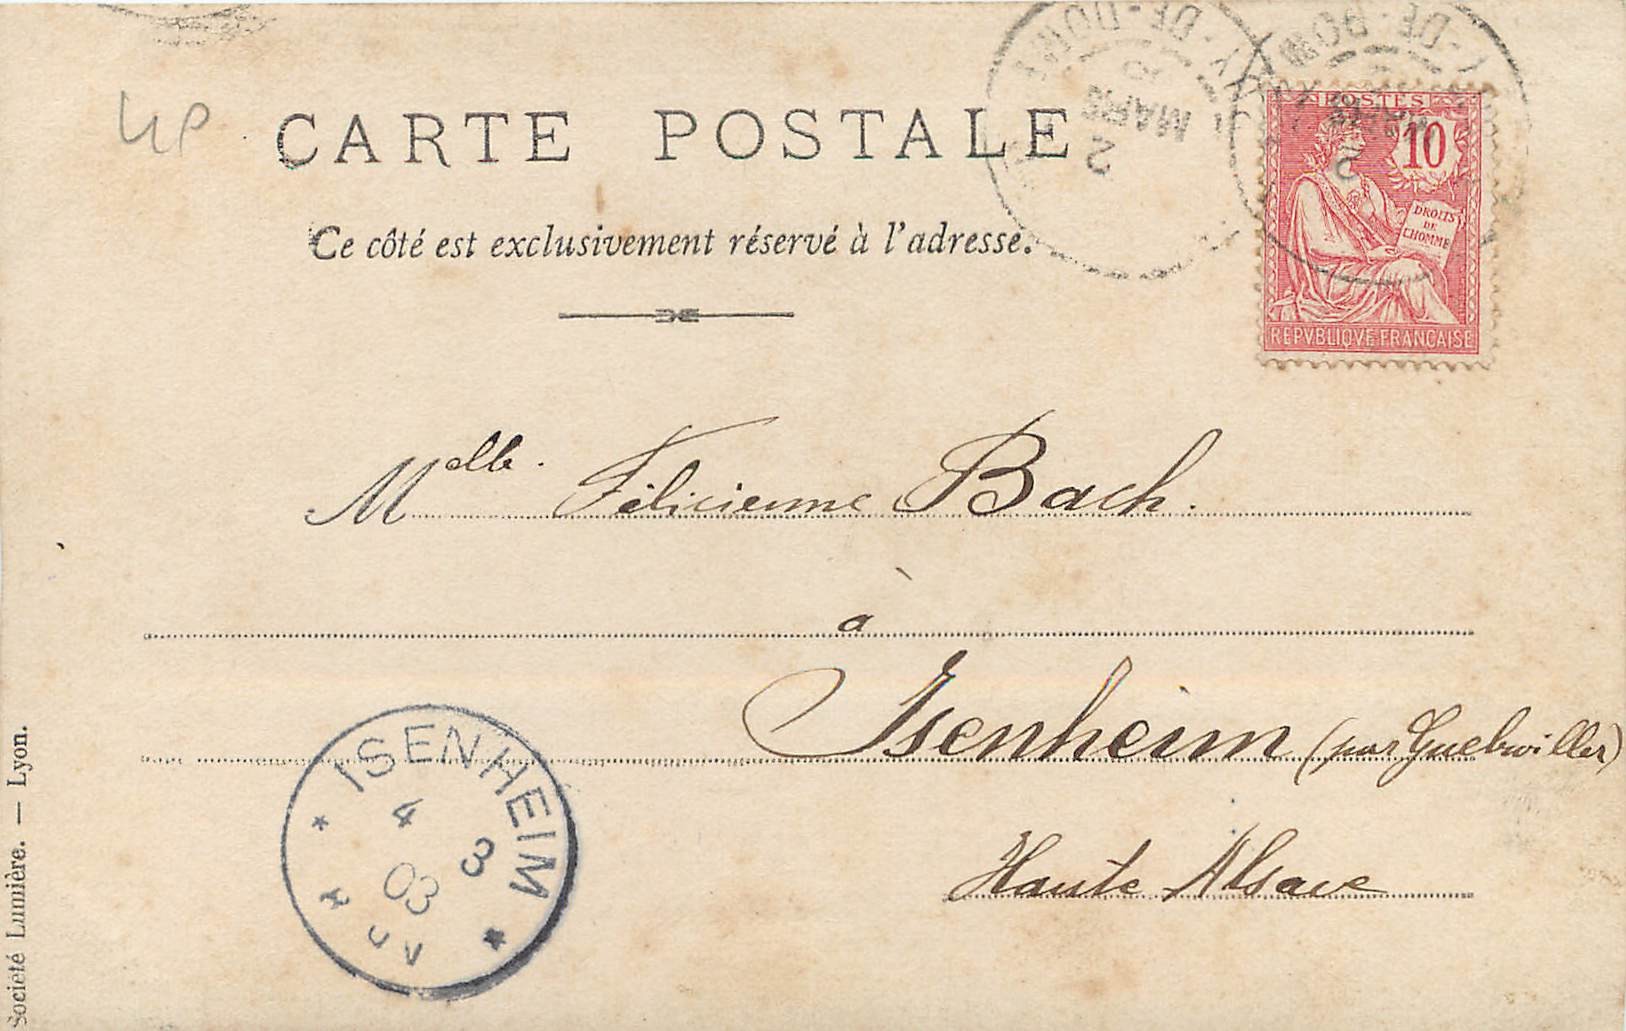 4P
CARTE POSTALE
Ce côté est exclusivement réservé à l'adresse.
PUY-DE-DOME
2
MARS
POSTES
10
DROITS
DE
L'HOMME
REPVBLIQVE FRANÇAISE
Melle. Félicienne Bach.
à
Isenheim (par Guebwiller)
Haute Alsace
* ISENHEIM *
4
3
03
Société Lumière. — Lyon.